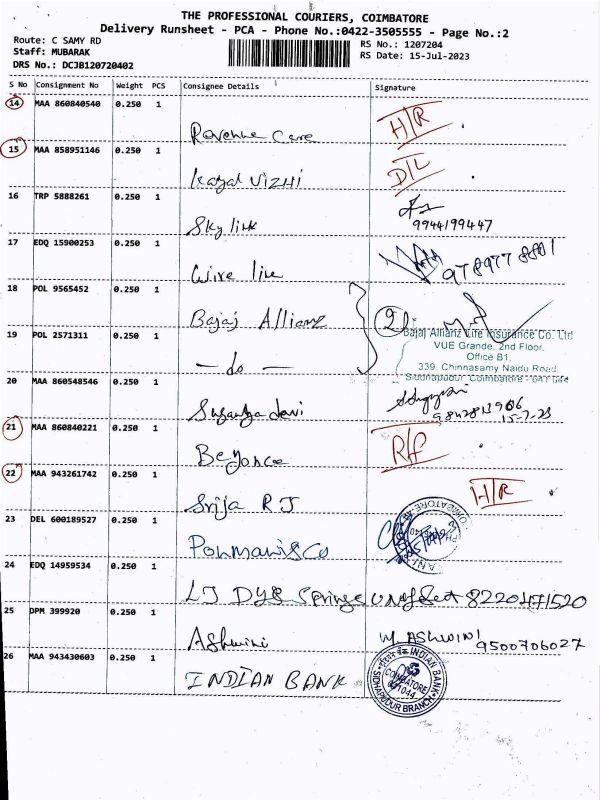 THE PROFESSIONAL COURIERS, COIMBATORE
Delivery Runsheet - PCA - Phone No.:0422-3505555 - Page No.:2
Route: C SAMY RD
Staff: MUBARAK
DRS No.: DCJB120720402
RS No.: 1207204
RS Date: 15-Jul-2023
S No Consignment No Weight PCS Consignee Details Signature
14 MAA 860840540 0.250 1
Revenue Care H/R
15 MAA 858951146 0.250 1
Kayal VIZHI D/L
16 TRP 5888261 0.250 1
Sky link 9944199447
17 EDQ 15900253 0.250 1
Wire line 9789778801
18 POL 9565452 0.250 1
Bajaj Allianz 2
19 POL 2571311 0.250 1
— do —
Bajaj Allianz Life Insurance Co. Ltd
VUE Grande, 2nd Floor,
Office B1,
339, Chinnasamy Naidu Road
Siddhapudur, Coimbatore - 641 044
20 MAA 860548546 0.250 1
Suganya devi
15-7-23
21 MAA 860840221 0.250 1
Beyonce R/f
22 MAA 943261742 0.250 1
Srija R J H/R
23 DEL 600189527 0.250 1
Ponmani & Co
24 EDQ 14959534 0.250 1
LJ 8220471520
25 DPM 399920 0.250 1
Ashwini M. ASHWINI 9500706027
26 MAA 943430603 0.250 1
INDIAN BANK
INDIAN BANK
COIMBATORE
641044
SIDHAPUDUR BRANCH